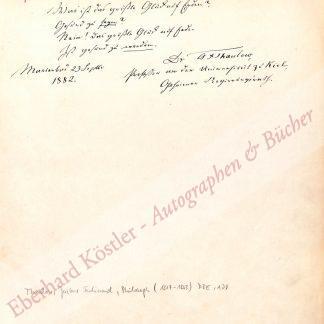 Was ist das größte Glück auf Erden?
Gesund zu sein?
Nein! das größte Glück auf Erden
Ist gesund zu werden.
Marienbad 23 Septbr
1882.
Dr
Professor an der Universität zu Kiel,
Geheimer Regierungsrath.
Eberhard Köstler - Autographen & Bücher
Julius Ferdinand, Philosoph